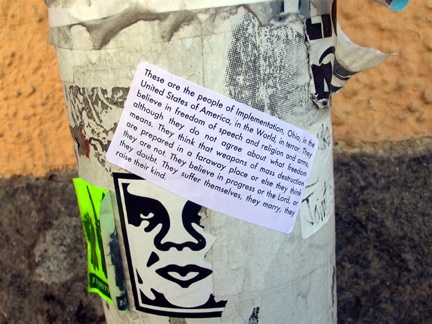 These are the people of Implementation, Ohio, in the
United States of America, in the World, in terror. They
believe in freedom of speech and religion and arms,
although they do not agree about what freedom
means. They think that weapons of mass destruction
are prepared in a faraway place or else they think
they are not. They believe in progress or the Lord, or
they doubt. They suffer themselves, they marry, they
raise their kind.